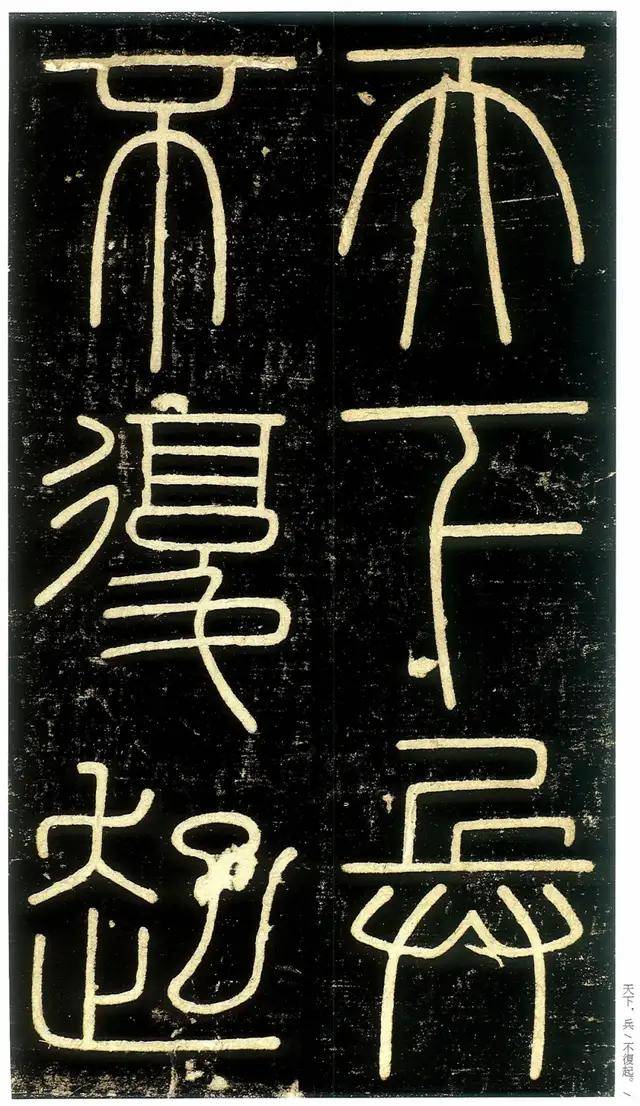 天下兵
不復起
天下，兵／不復起。／